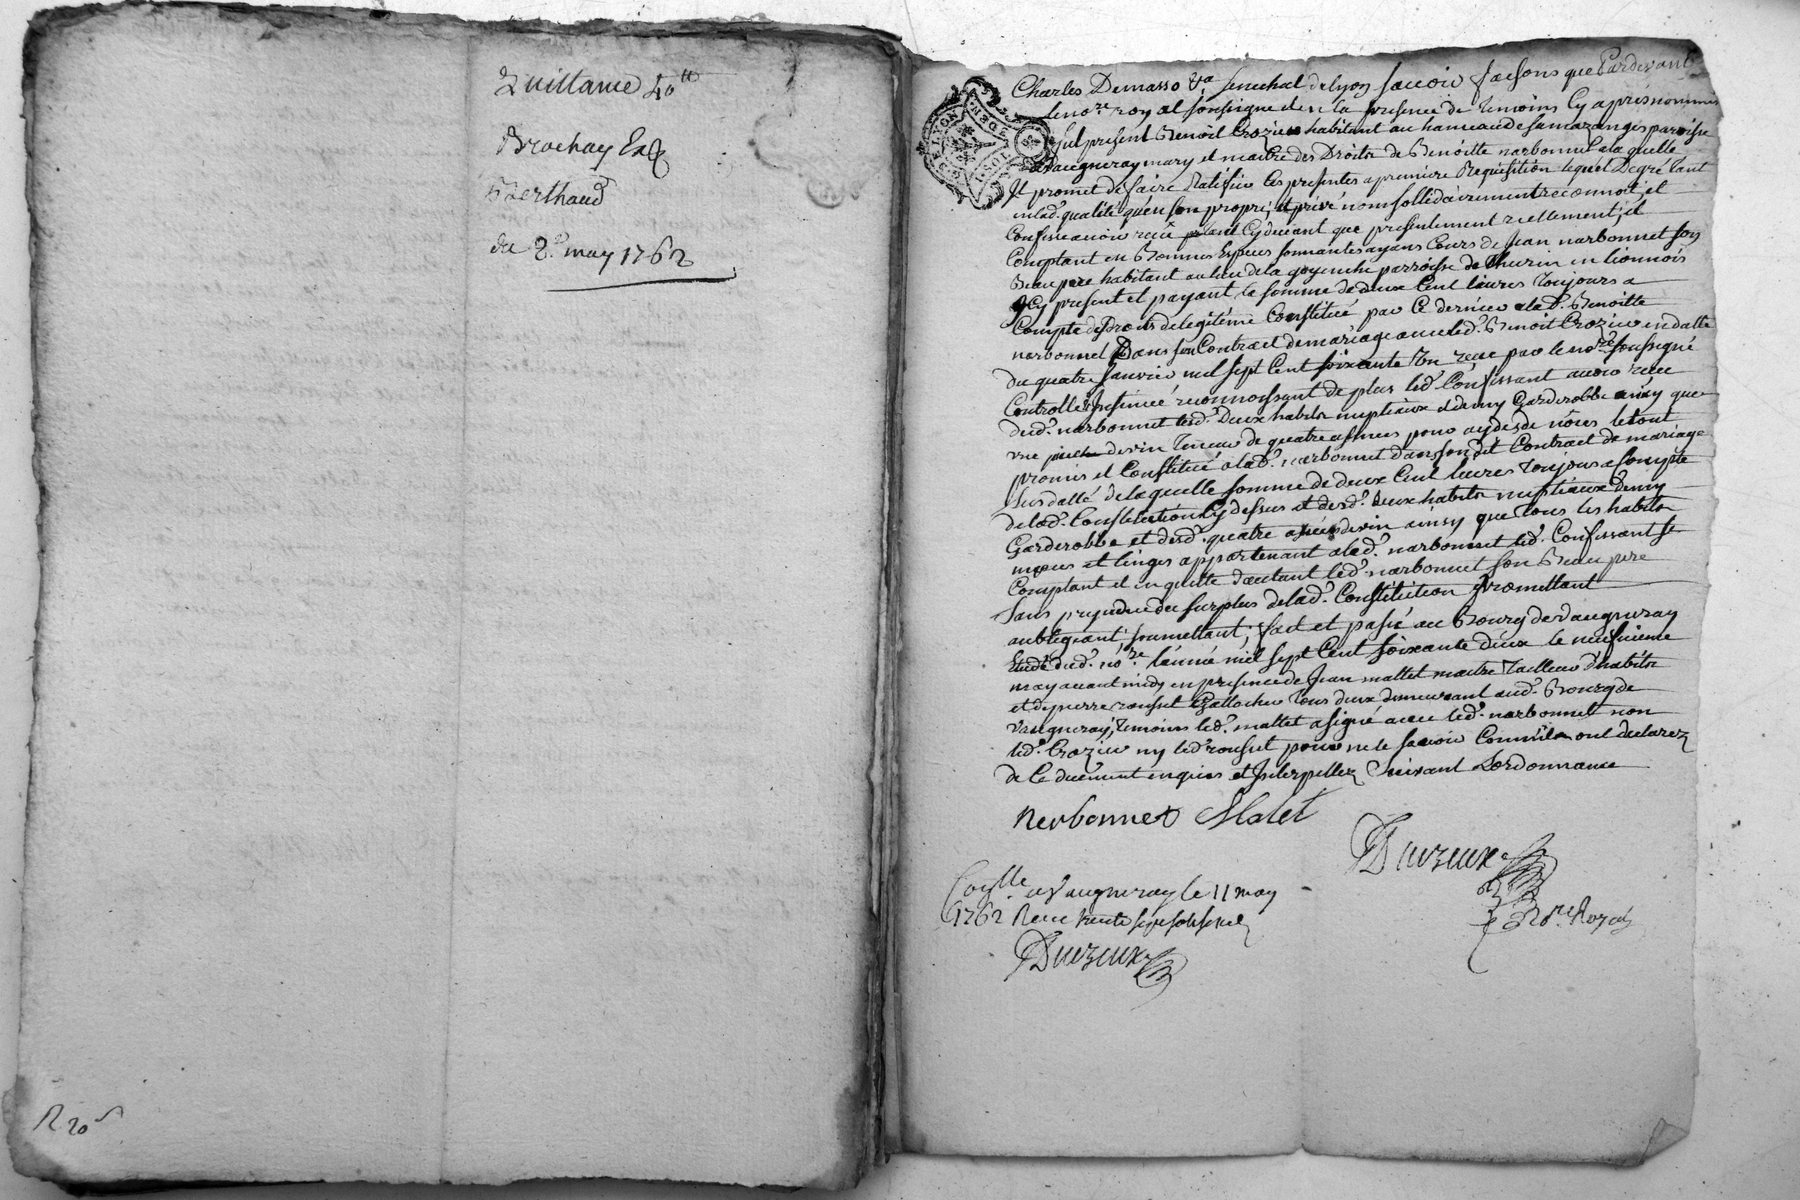 Quittance 40tt
Brochay Et
Berthaud
du 2e may 1762
R 20s
GEN. DE LYON
MOYEN
SOL
Charles Demasso &a senechal de lyon savoir faisons que Pardevant
le nore royal soussigné et en la presence de temoins cy apres nommés
fut present Benoit Crozier habitant au hameau de paroisse
de vaugneray mary et maitre des Droits de Benoitte narbonnet a laquelle
Il promet de faire Ratifier les presentes a premiere Requisition lequel De gré tant
en lad. qualité qu'en son propre, et privé nom sollidairement reconnoit, et
Confesse avoir recû cy devant que presentement reellement, et
Comptant en Bonnes Especes sonnantes ayans Cours de Jean narbonnet son
Beau pere habitant au lieu de la parroisse de thurin en lionnois
Icy present et payant la somme de deux Cent livres toujours a
Compte des Droits de legitime Constitué par Ce dernier a lad. Benoitte
narbonnet Dans son Contract de mariage avec led. Benoit Crozier en datte
du quatre Janvier mil sept Cent soixante Un recu par le nore soussigné
Controllé et Insinué reconnoissant de plus led. Confessant avoir recu
dud. narbonnet lesd. Deux habits nuptiaux et demy Garderobbe ainsy que
une de vin teneur de quatre asnées pour ayde de nôces le tout
promis et Constitué a lad. narbonnet dans son dit Contract de mariage
Sus datté de laquelle somme de deux Cent livres toujours a Compte
de lad. Constitution Cy dessus et desd. deux habits nuptiaux demy
Garderobbe et desd. quatre asnées de vin ainsy que tous les habits
nipes et linges appartenant a lad. narbonnet led. Confessant se
Comptant et en quitte d'autant led. narbonnet son Beau pere
Sans prejudice du surplus de lad. Constitution Promettant
oubligeant, soumettant, fait et passé au Bourg de Vaugneray
Etude dud. nore l'année mil sept Cent soixante deux le neufvieme
may avant midy en presence de Jean mallet maitre tailleur d'habits
et de pierre rousset tous deux demeurant aud. Bourg de
vaugneray, temoins led. mallet a signé avec led. narbonnet non
led. Crozier ny led. rousset pour ne le savoir Comm'ils ont declarez
de Ce duement enquis et Interpellez Suivant L'ordonnance
nerbonnet Malet
Duvzeux
Nore Royal
Conlle a Vaugneray le 11 may
1762 Recu trente
Duvzeux